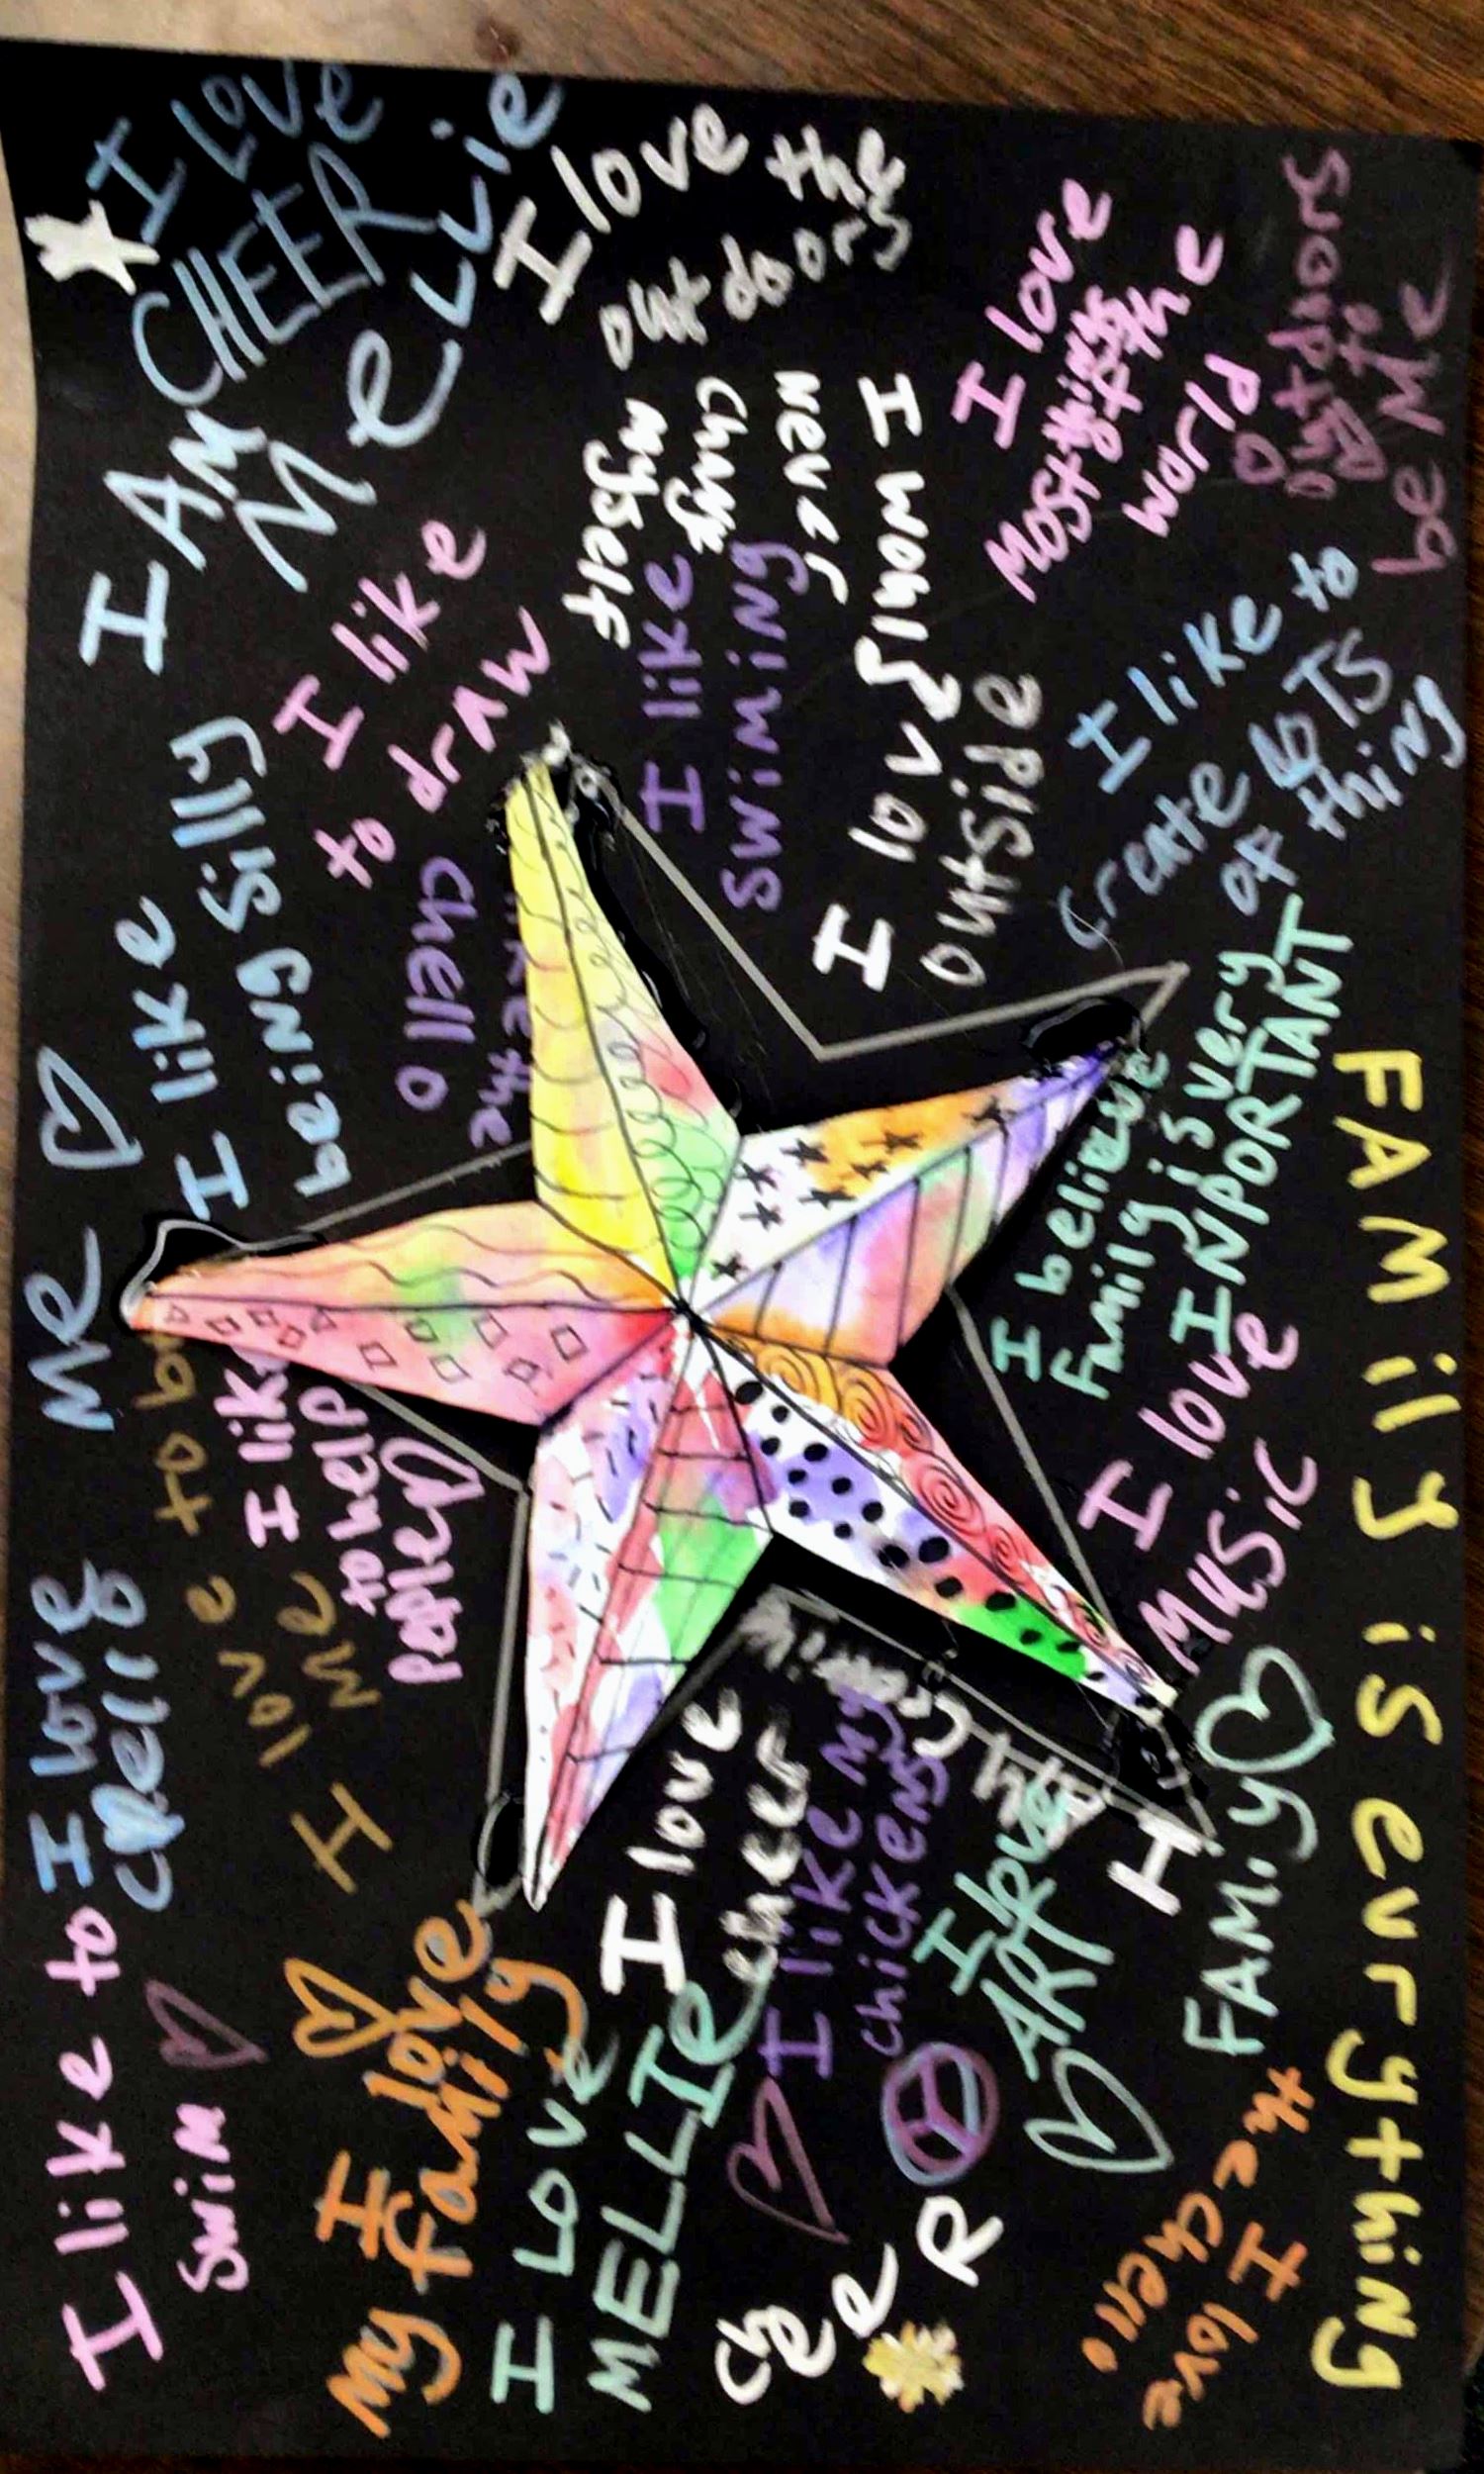 I love
CHEER
I AM
Mellie
I love the
outdoors
I love
Most things
of the
world
outdoors
be Me
I would
never
change
myself
I like
swiming
I love
outside
I like to
create LOTS
of thing
I like
to draw
I like
being silly
the
chello
Me
I believe
Family is very
INPORTANT
I love
Music
FAMily is evrything
FAMiy
I like
to help
people
to be
I love
Me
I love
I like to
swim
I love
My family
I love
cheer
I Love
MELLIE
I like my
chickens
I love
ART
I AM
CheeR
I love
the chello